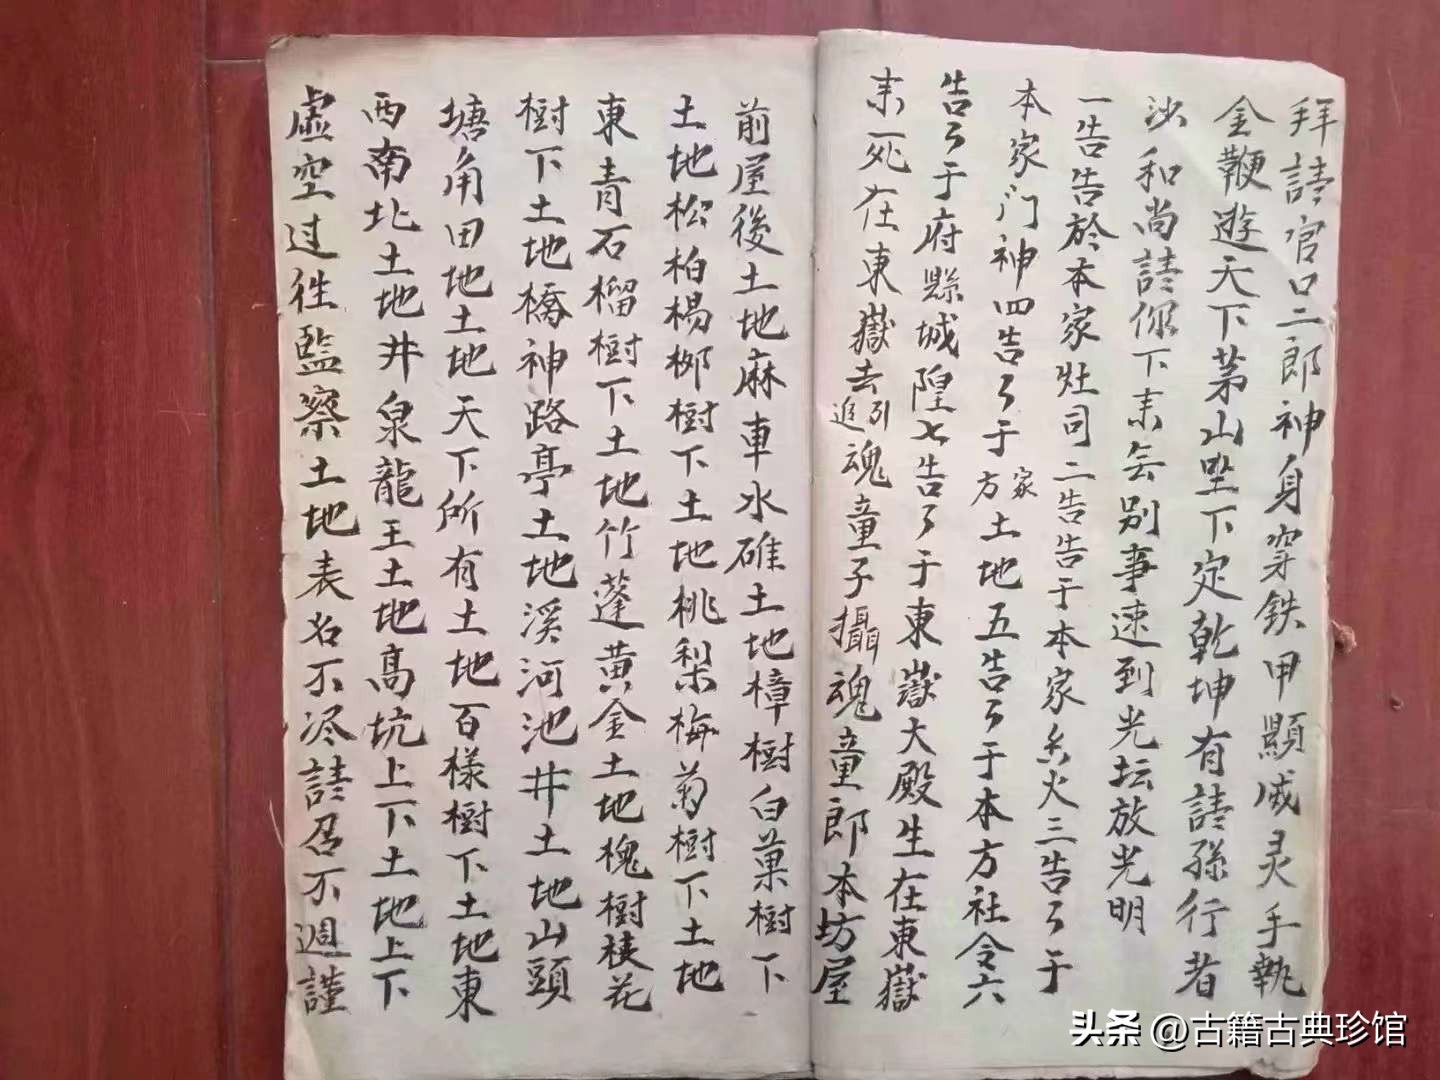 拜請官口二郎神身穿鉄甲顯威灵手執
金鞭遊天下茅山坐下定乾坤有請孫行者
沙和尚請你下来無别事速到光坛放光明
一告告於本家灶司二告告于本家香火三告了于
本家门神四告了于家方土地五告了于本方社令六
告了于府縣城隍七告了于東嶽大殿生在東嶽
来死在東嶽去引追魂童子攝魂童郎本坊屋
前屋後土地麻車水碓土地樟樹白菓樹下
土地松柏楊柳樹下土地桃梨梅菊樹下土地
東青石榴樹下土地竹蓬黄金土地槐樹桂花
樹下土地橋神路亭土地溪河池井土地山頭
塘角田地土地天下所有土地百樣樹下土地東
西南北土地井泉龍王土地高坑上下土地上下
虚空过往監察土地表名不尽請召不週謹
头条 @古籍古典珍馆